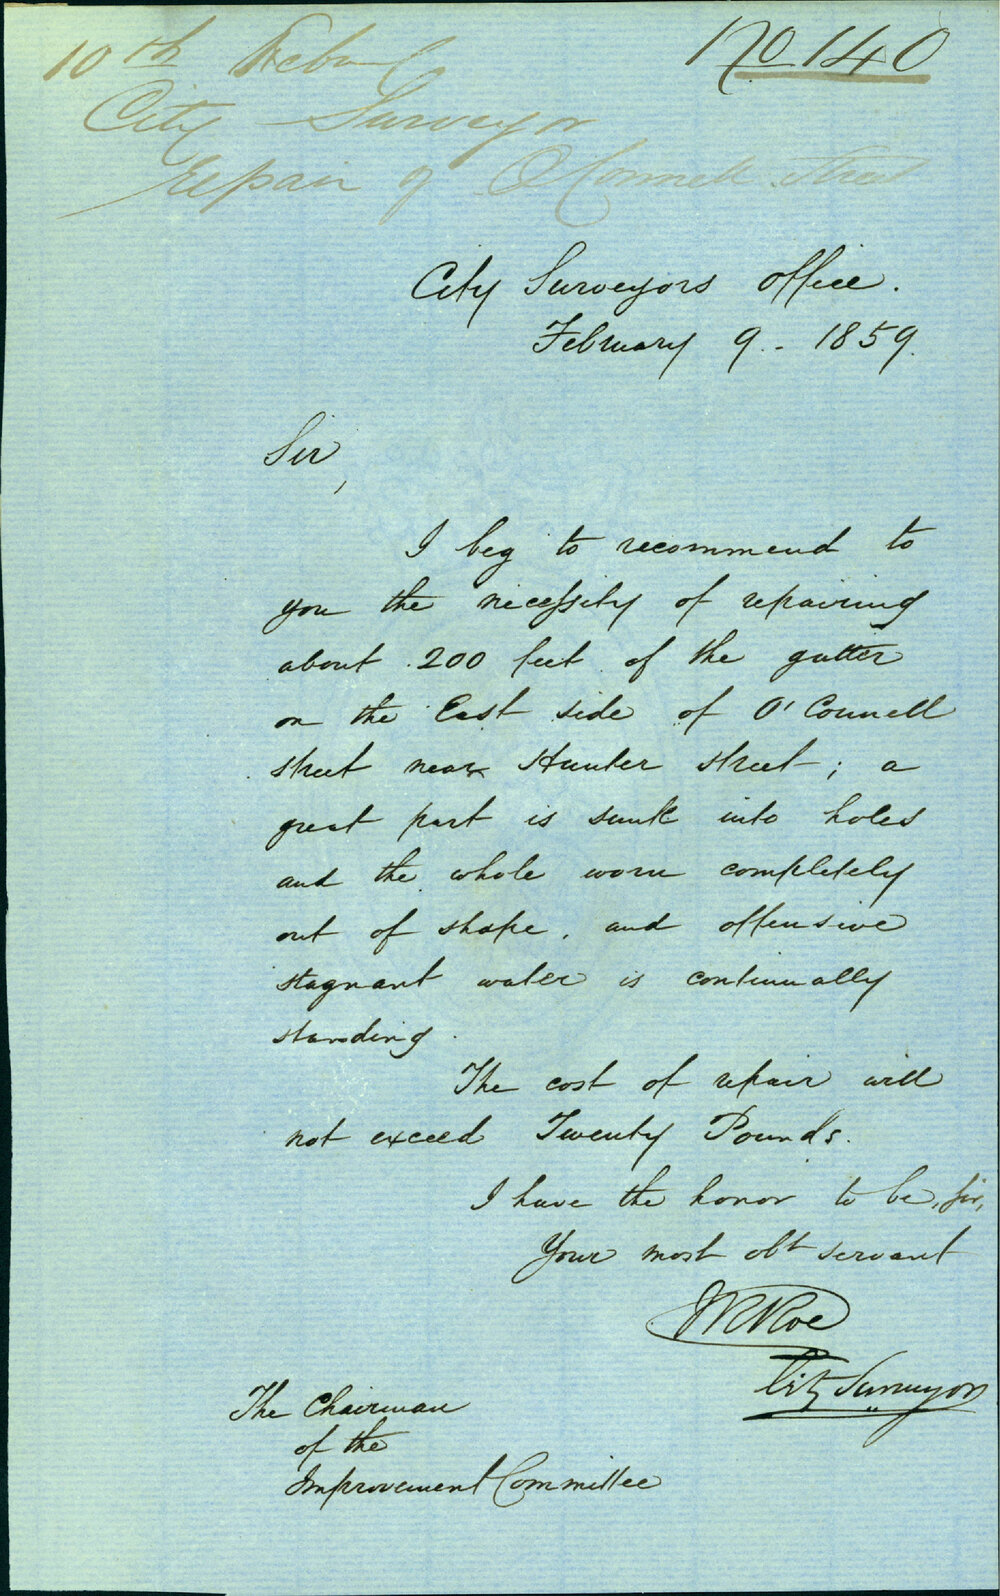 No 140
10th Feby
City Surveyor
Repair of O'Connell Street
City Surveyors Office.
February 9 - 1859.
Sir,
I beg to recommend to
you the necessity of repairing
about 200 feet of the gutter
on the East side of O'Connell
street near Hunter street; a
great part is sunk into holes
and the whole worn completely
out of shape. and offensive
stagnant water is continually
standing.
The cost of repair will
not exceed Twenty Pounds.
I have the honor to be, Sir,
Your most obt servant
City Surveyor
The Chairman
of the
Improvement Committee